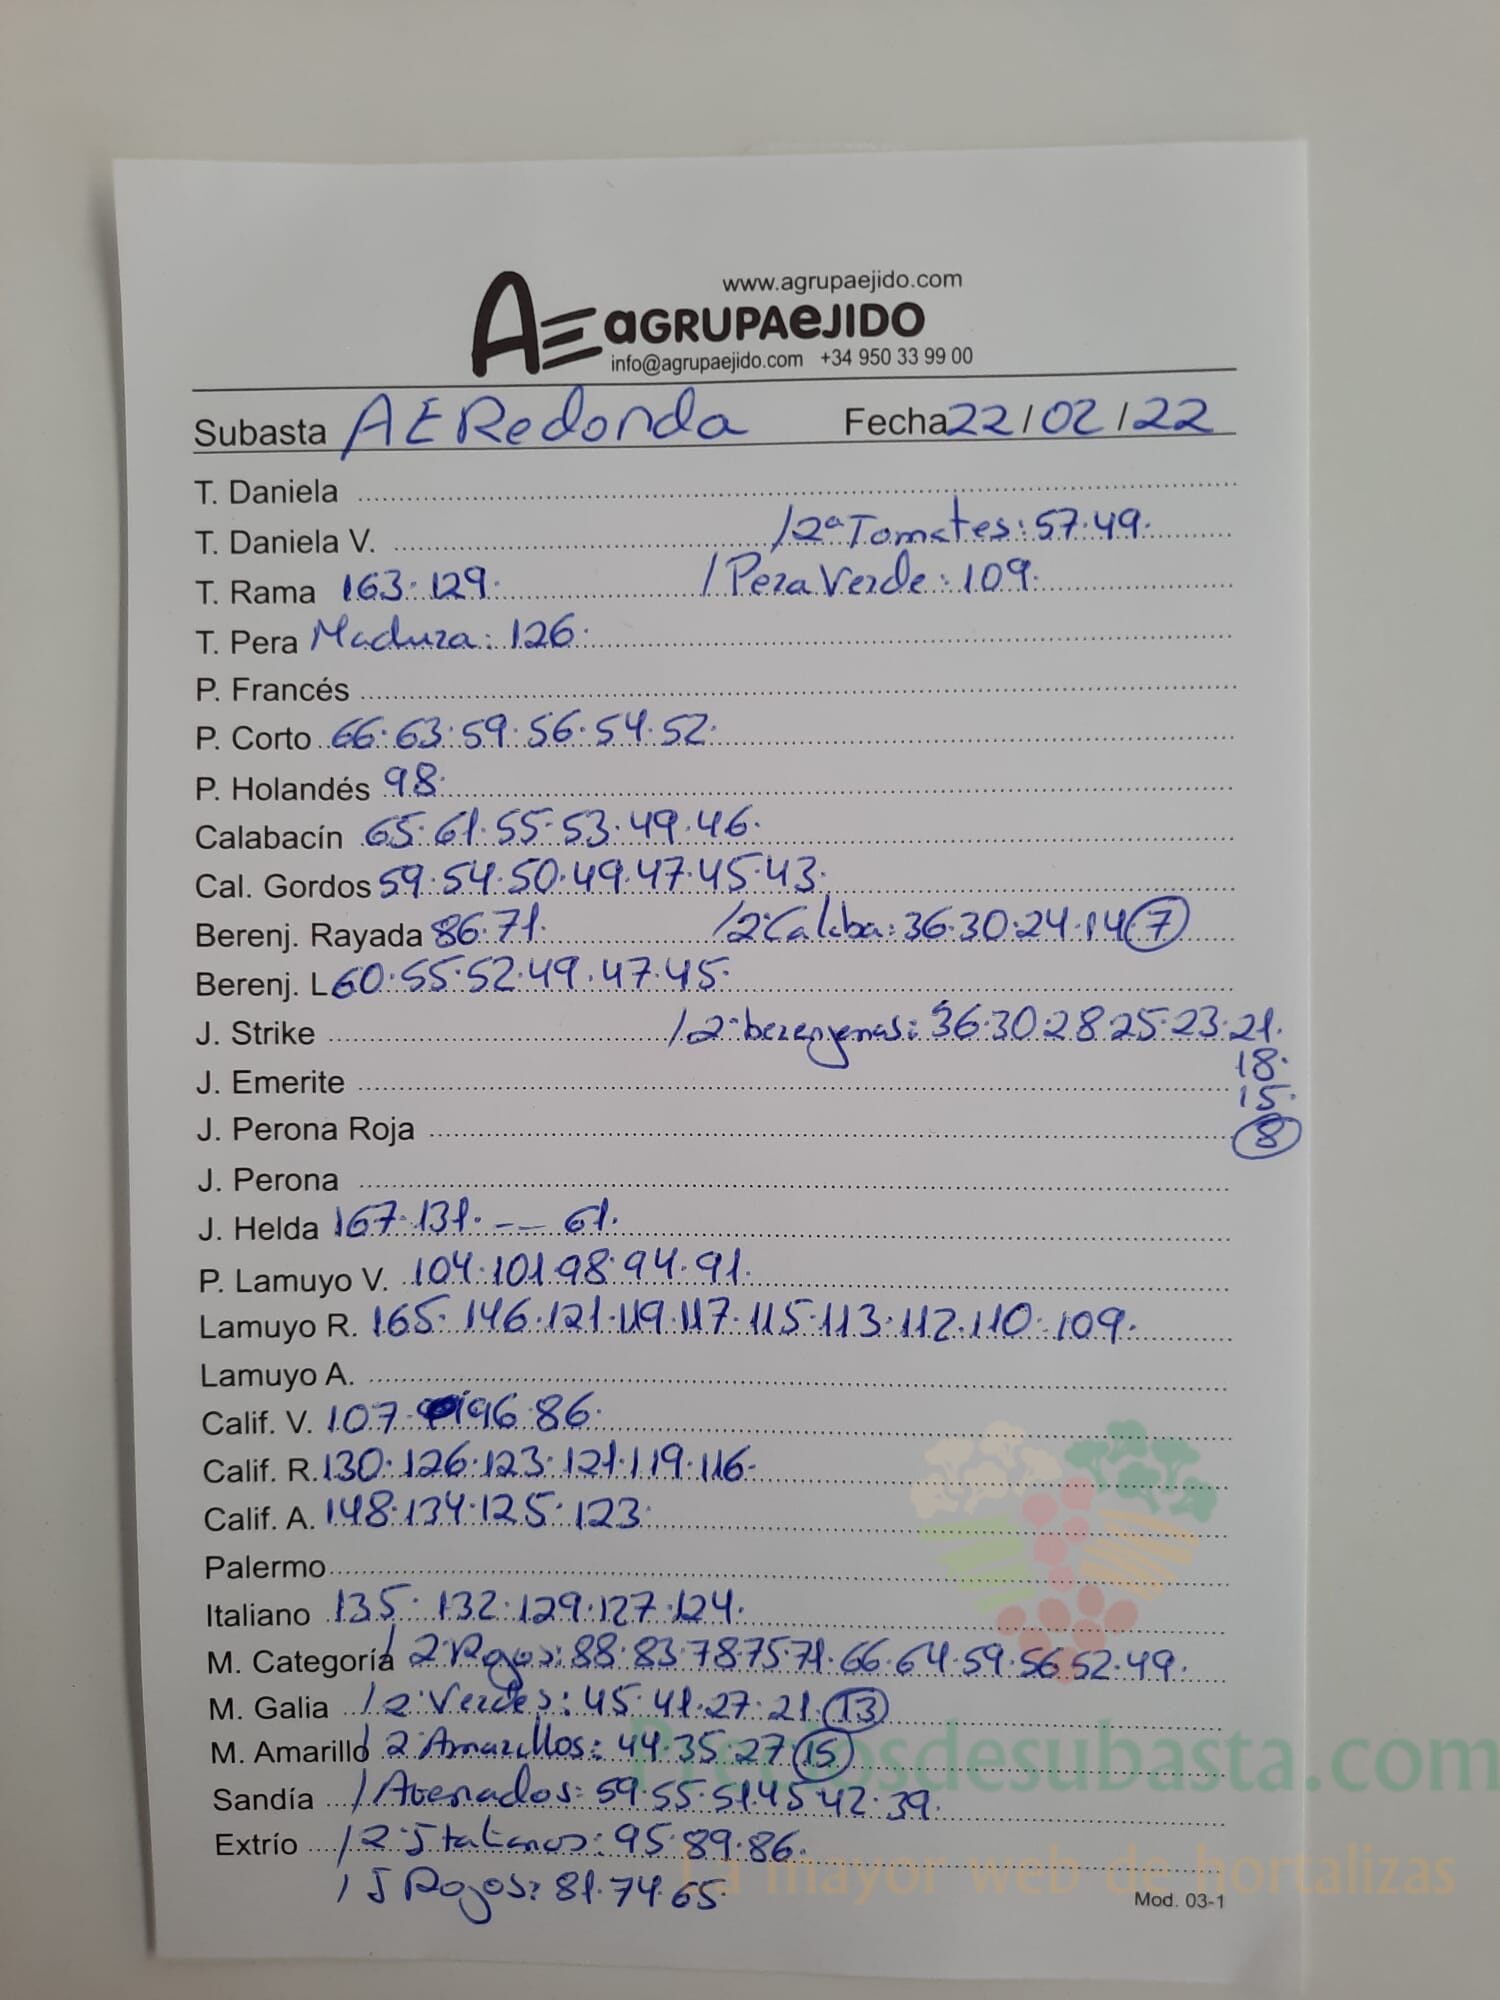 www.agrupaejido.com
AE aGRUPAeJIDO
info@agrupaejido.com +34 950 33 99 00
Subasta AE Redonda Fecha 22/02/22
T. Daniela
T. Daniela V. /2ª Tomates: 57.49.
T. Rama 163.129. /Pera Verde: 109.
T. Pera Madura: 126.
P. Francés
P. Corto 66.63.59.56.54.52.
P. Holandés 98.
Calabacín 65.61.55.53.49.46.
Cal. Gordos 59.54.50.49.47.45.43.
Berenj. Rayada 86.71. /2ª Calaba: 36.30.24.14 7
Berenj. L 60.55.52.49.47.45.
J. Strike /2ª berenjenas: 36.30.28.25.23.21.
J. Emerite 18.
15.
J. Perona Roja 8
J. Perona
J. Helda 167.131. -- 61.
P. Lamuyo V. 104.101.98.94.91.
Lamuyo R. 165.146.121.119.117.115.113.112.110.109.
Lamuyo A.
Calif. V. 107. 96.86.
Calif. R. 130.126.123.121.119.116.
Calif. A. 148.134.125.123.
Palermo
Italiano 135.132.129.127.124.
M. Categoría /2ª Rojos: 88.83.78.75.71.66.64.59.56.52.49.
M. Galia /2ª Verdes: 45.41.27.21. 13
M. Amarillo /2ª Amarillos: 44.35.27. 15
Preciosdesubasta.com
Sandía /Asenados: 59.55.51.45.42.39.
Extrío /2ª Italianos: 95.89.86.
La mayor web de hortalizas
/ I Rojos: 81.74.65.
Mod. 03-1